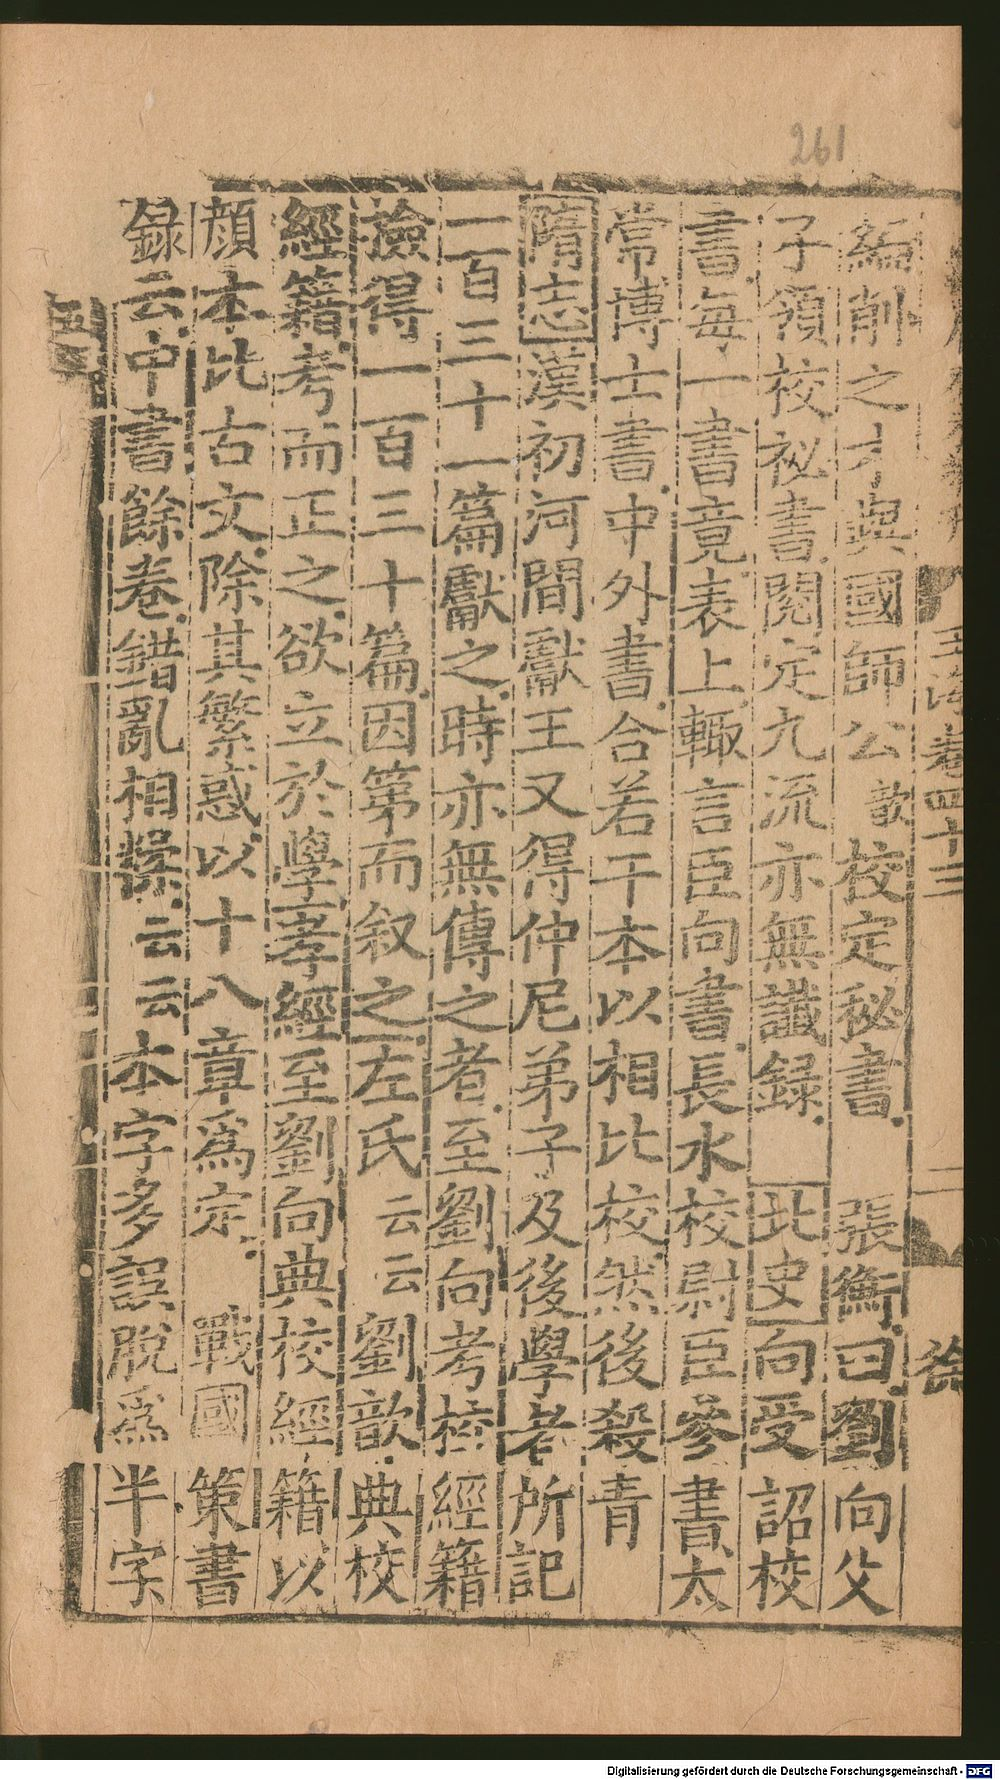 261
玉海卷四十三
一
徐
編削之才與國師公歆校定秘書張衡曰劉向父
子領校祕書閱定九流亦無讖録北史向受詔校
書每一書竟表上輙言臣向書長水校尉臣參書太
常博士書中外書合若干本以相比校然後殺青
隋志漢初河間獻王又得仲尼弟子及後學者所記
一百三十一篇獻之時亦無傳之者至劉向考校經籍
撿得一百三十篇因第而叙之左氏云云劉歆典校
經籍考而正之欲立於學孝經至劉向典校經籍以
顔本比古文除其繁惑以十八章爲定戰國策書
録云中書餘卷錯亂相糅云云本字多誤脫爲半字
Digitalisierung gefördert durch die Deutsche Forschungsgemeinschaft - DFG